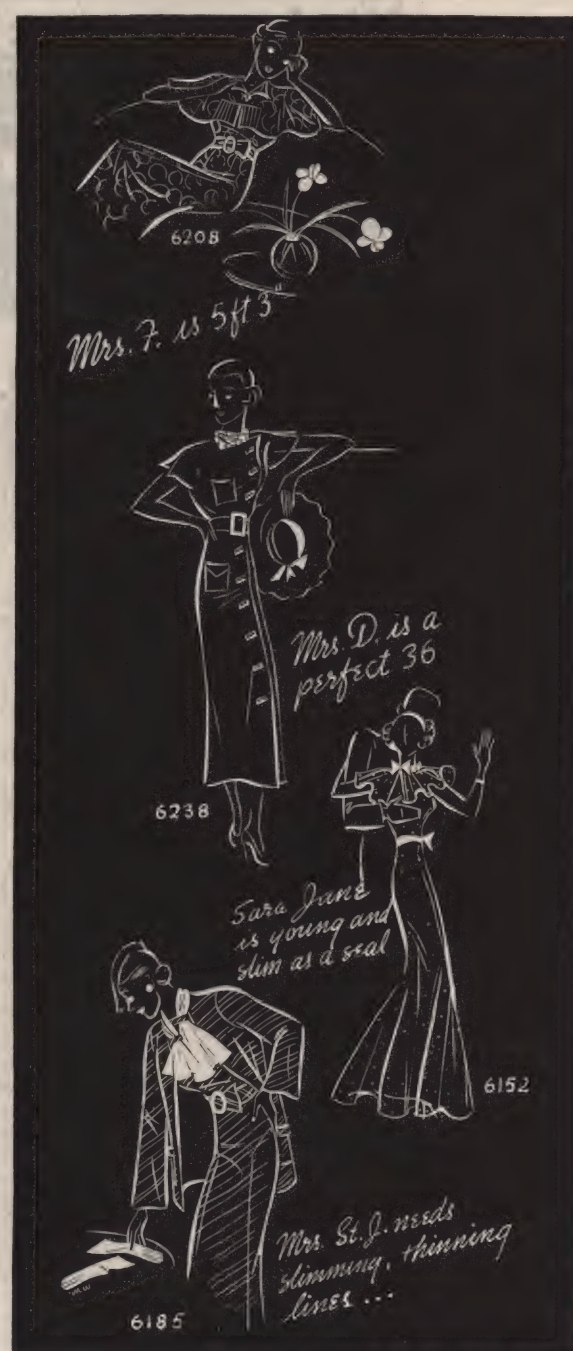 6208
Mrs. F. is 5 ft 3
Mrs. D. is a
perfect 36
6238
Sara Jane
is young and
slim as a seal
6152
Mrs. St. J. needs
slimming, thinning
lines ...
6185